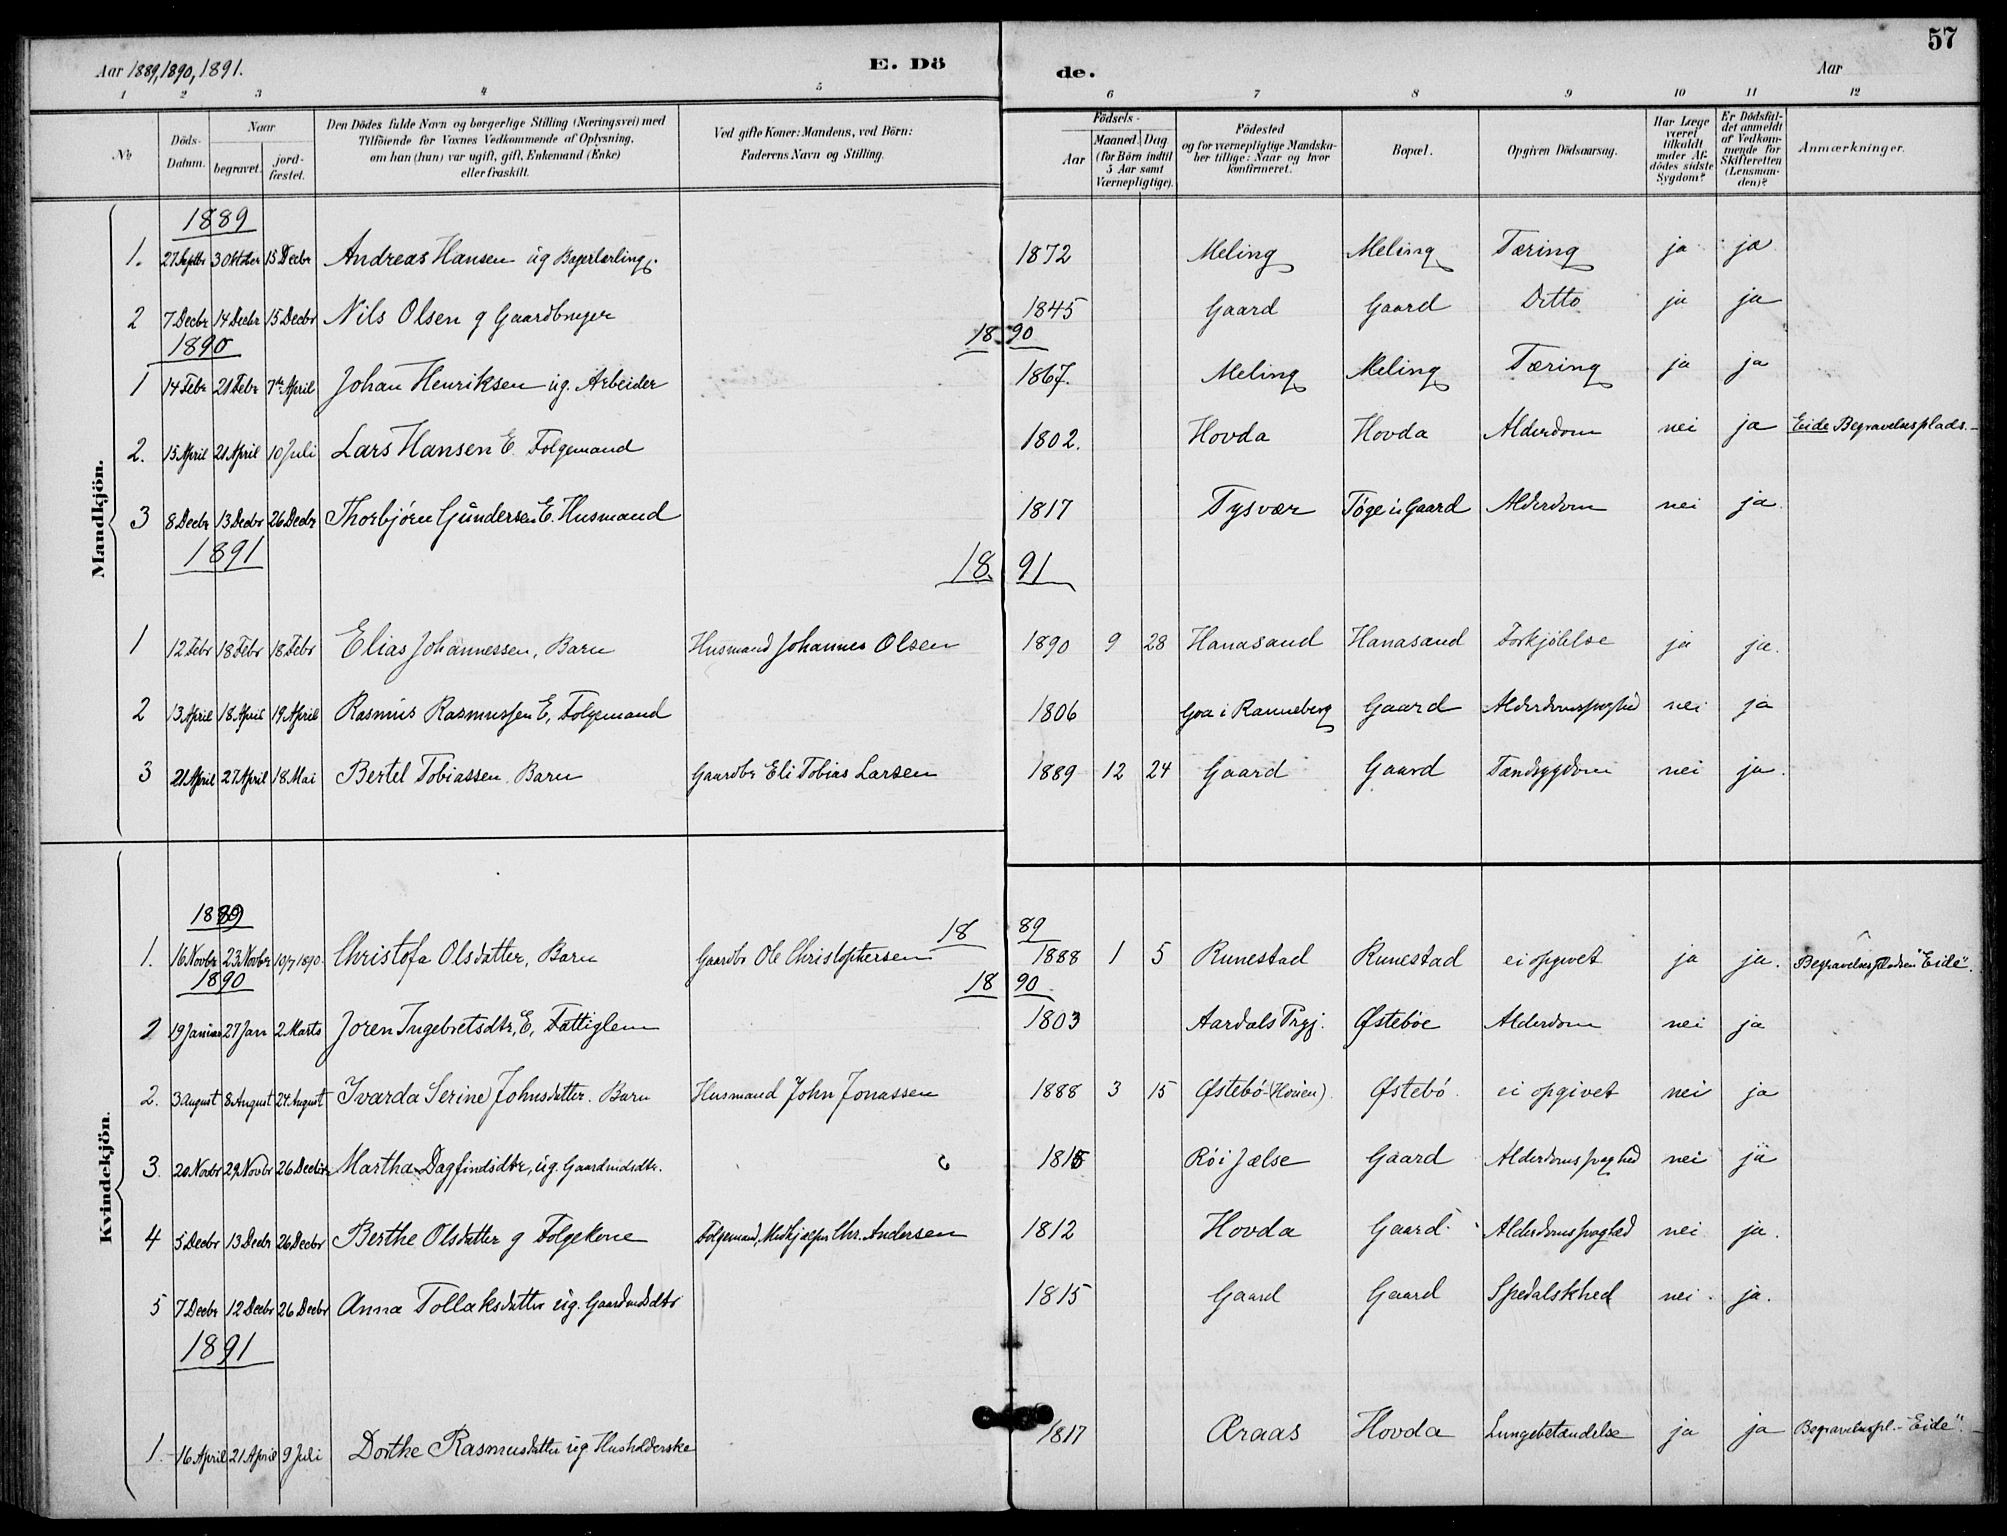 57
Aar 1889, 1890, 1891. E. Dö de. Aar
1 2 3 4 5 6 7 8 9 10 11 12
No Döds-Datum. Naar begravet. jord-fæstet. Den Dödes fulde Navn og borgerlige Stilling (Næringsvei) med Tilföiende for Voxnes Vedkommende af Oplysning, om han (hun) var ugift, gift, Enkemand (Enke) eller fraskilt. Ved gifte Koner: Mandens, ved Börn: Faderens Navn og Stilling. Födsels- Aar Maaned. Dag (for Börn indtil 5 Aar samt Værnepligtige). Födested og for værnepligtige Mandskaber tillige: Naar og hvor konfirmeret. Bopæl. Opgiven Dödsaarsag. Har Læge været tilkaldt under Afdödes sidste Sygdom? Er Dödsfaldet anmeldt af Vedkommende for Skifteretten (Lensmanden)? Anmærkninger.
Mandkjön.
1889
1. 27 Septbr 3 Oktober 15 Decbr Andreas Hansen ug Bagerlærling. 1872 Meling Meling Tæring ja ja
2 7 Decbr 14 Decbr 15 Decbr Nils Olsen g Gaardbruger 1845 Gaard Gaard Ditto ja ja
1890 18 90
1 14 Febr 21 Febr 7de April Johan Henriksen ug. Arbeider 1867. Meling Meling Tæring ja ja
2. 15 April 21 April 10 Juli Lars Hansen E. Folgemand 1802. Hovda Hovda Alderdom nei ja Eide Begravelsesplads.
3 8 Decbr 13 Decbr 26 Decbr Thorbjørn Gundersen E. Husmand 1817 Tysvær Tøge u Gaard Alderdom nei ja.
1891 18. 91
1 12 Febr 18 Febr 18 Febr Elias Johannessen, Barn Husmand Johannes Olsen 1890 9 28 Hanasand Hanasand Forkjølelse ja ja.
2 13 April 18 April 19 April Rasmus Rasmussen E, Folgemand 1806 Goa i Ranneberg Gaard Alderdomssvaghed nei ja
3 21 April 27 April 18 Mai Bertel Tobiassen. Barn Gaardbr Eli Tobias Larsen 1889 12 24 Gaard Gaard Tandsygdom nei ja.
Kvindekjön.
1889 18 89
1. 16 Novbr 23 Novbr 10/7 1890. Christofa Olsdatter, Barn Gaardbr Ole Christophersen 1888 1 5 Runestad Runestad ei opgivet ja ja. Begravelsespladsen "Eide".
1890 18 90
1 19 Januar 27 Jan 2 Marts Joren Ingebretsdtr, E, Fattiglem 1803 Aardals Prgj. Østebøe Alderdom nei ja
2. 3 August 8 August 24 August Ivarda Serine Johnsdatter. Barn Husmand John Jonassen 1888 3 15 Østebø (Houen). Østebö. ei opgivet nei ja
3. 20 Novbr 29 Novbr 26 Decbr Martha Dagfindsdtr, ug. Gaardmdsdtr. 1815 Rö i Jælse Gaard Alderdomssvaghed nei ja
4 5 Decbr 13 Decbr 26 Decbr Berthe Olsdatter g Folgekone Folgemand, Medhjælper Chr. Andersen 1812 Hovda Gaard. Alderdomssvaghed nei ja.
5 7 Decbr 12 Decbr 26 Decbr Anna Tollaksdatter ug. Gaardmdsdtr 1815 Gaard Gaard Spedalskhed nei. ja.
1891
1. 16 April 21 April 9 Juli Dorthe Rasmusdatter ug Husholderske 1817 Aaraas Hovda Lungebetændelse ja ja Begravelsespl. "Eide".